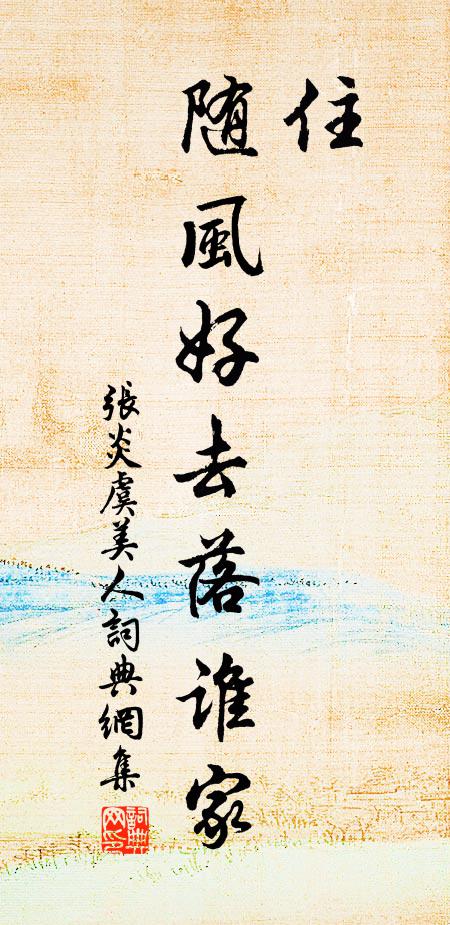 住
随風好去落誰家
張炎虞美人詞典網集
詞典
网印